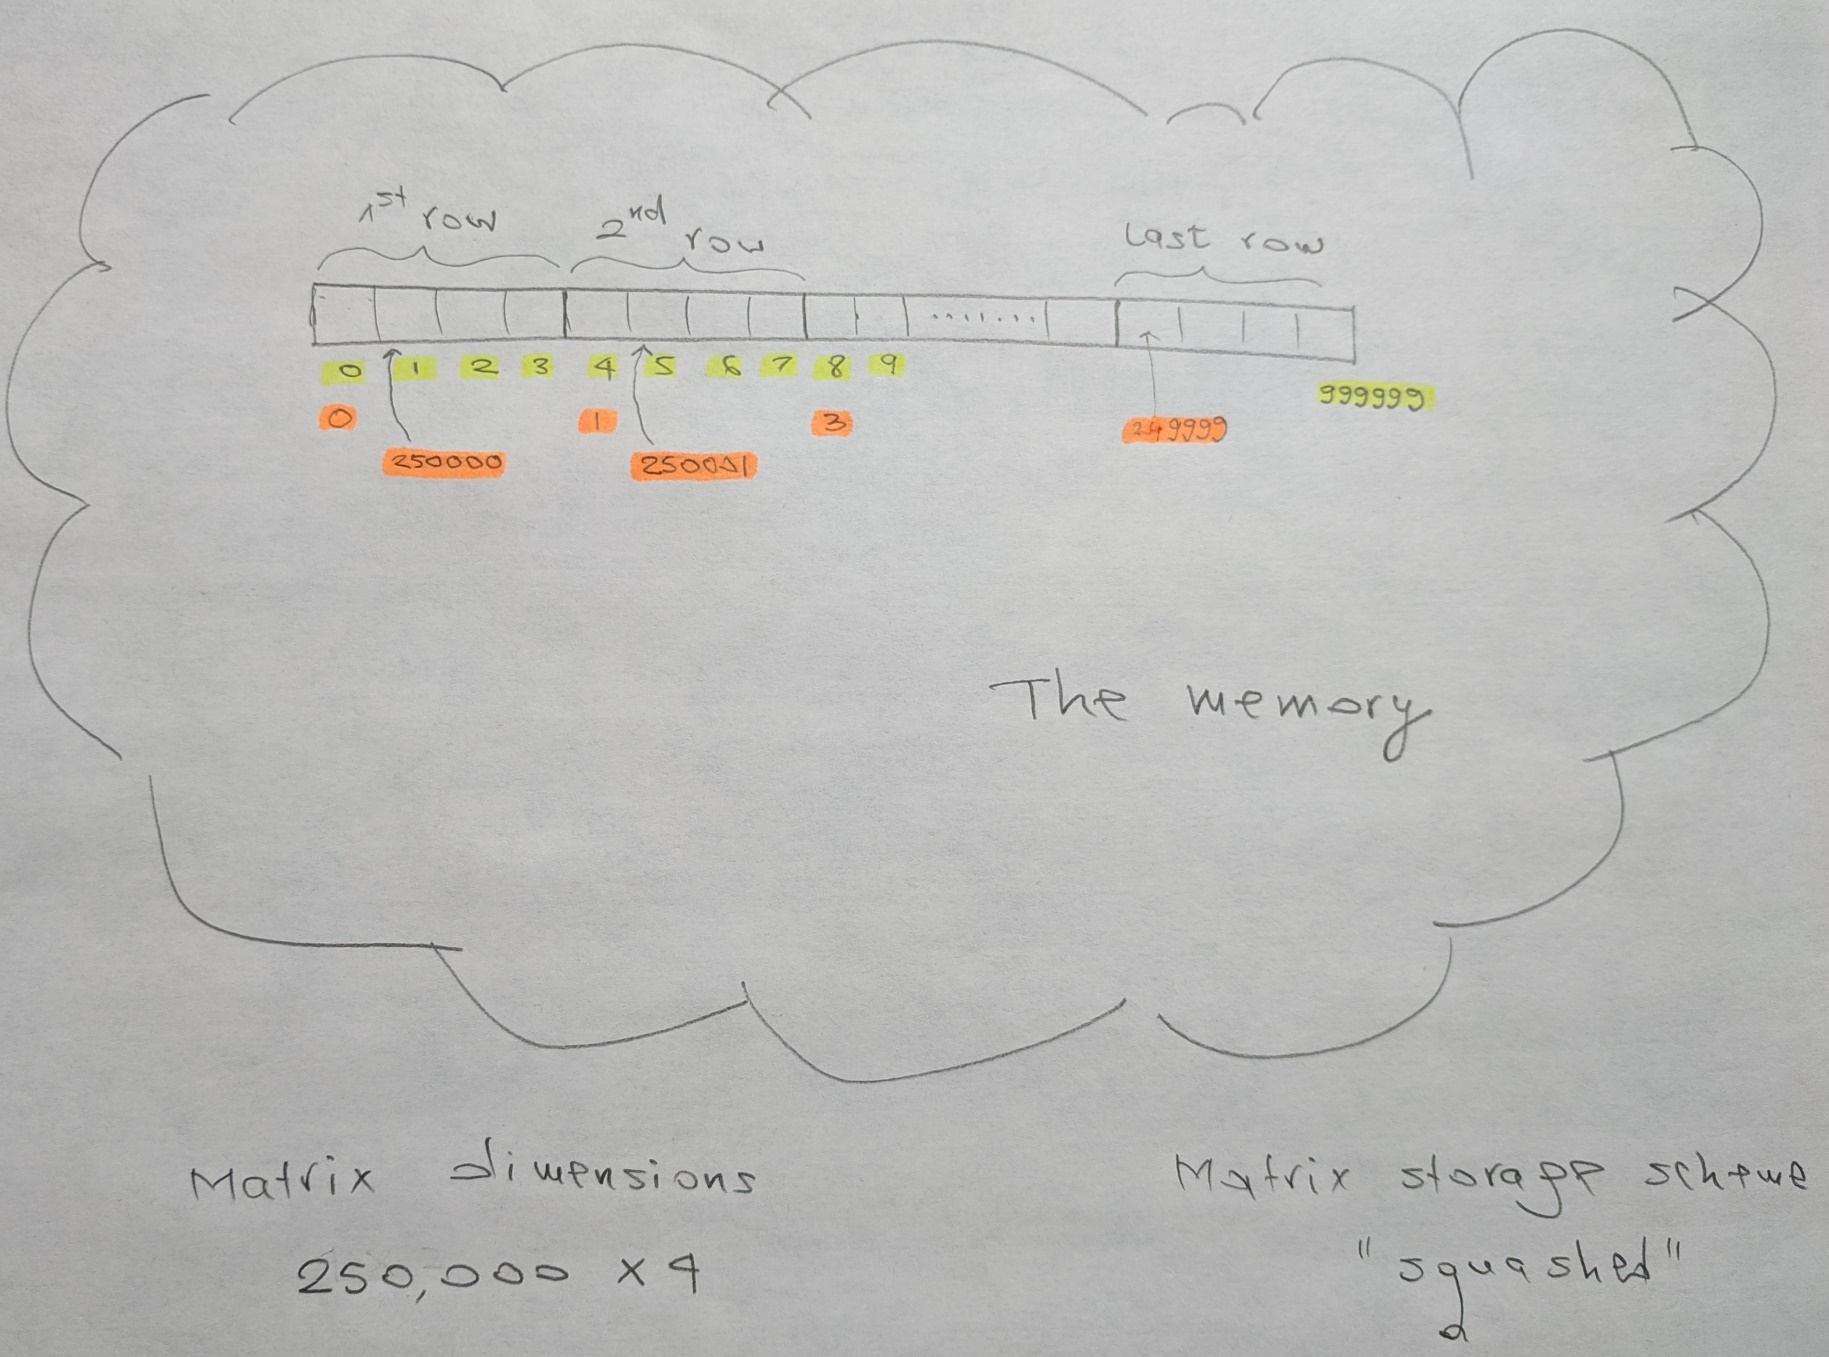 1st row 2nd row Last row
........
0 1 2 3 4 5 6 7 8 9 999999
0 1 3 249999
250000 250001
The memory
Matrix dimensions
250,000 x 4
Matrix storage scheme
"squashed"